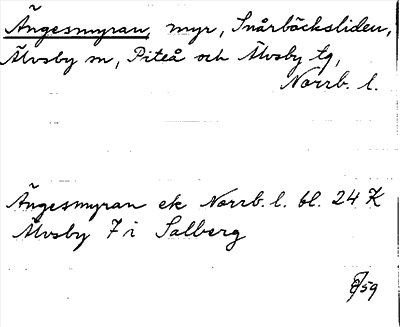 Ängesmyran, myr, Snårböcksliden,
Älvsby sn, Piteå och Älvsby tg,
Norrb. l.
Ängesmyran ek Norrb. l. bl. 24 K
Älvsby 7 i Salberg
59